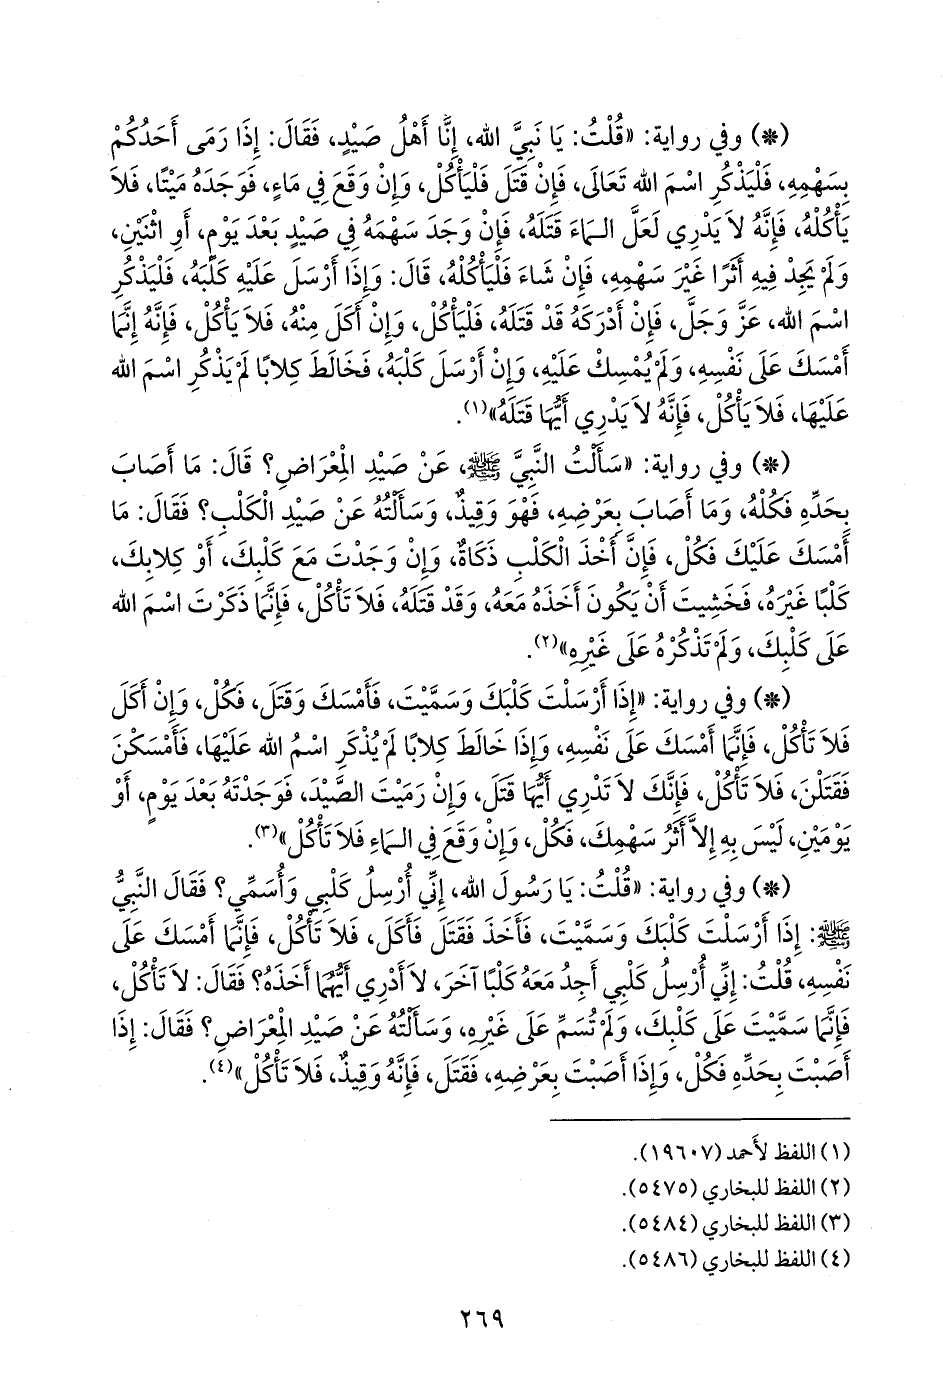 (*) وفي رواية: «قُلْتُ: يَا نَبِيَّ الله، إِنَّا أَهْلُ صَيْدٍ، فَقَالَ: إِذَا رَمَى أَحَدُكُمْ
بِسَهْمِهِ، فَلْيَذْكُرِ اسْمَ الله تَعَالَى، فَإِنْ قَتَلَ فَلْيَأْكُلْ، وَإِنْ وَقَعَ فِي مَاءٍ، فَوَجَدَهُ مَيْتًا، فَلَا
يَأْكُلْهُ، فَإِنَّهُ لاَ يَدْرِي لَعَلَّ الـمَاءَ قَتَلَهُ، فَإِنْ وَجَدَ سَهْمَهُ فِي صَيْدٍ بَعْدَ يَوْمٍ، أَوِ اثْنَيْنِ،
وَلَمْ يَجِدْ فِيهِ أَثَرًا غَيْرَ سَهْمِهِ، فَإِنْ شَاءَ فَلْيَأْكُلْهُ، قَالَ: وَإِذَا أَرْسَلَ عَلَيْهِ كَلْبَهُ، فَلْيَذْكُرِ
اسْمَ الله، عَزَّ وَجَلَّ، فَإِنْ أَدْرَكَهُ قَدْ قَتَلَهُ، فَلْيَأْكُلْ، وَإِنْ أَكَلَ مِنْهُ، فَلاَ يَأْكُلْ، فَإِنَّهُ إِنَّمَا
أَمْسَكَ عَلَى نَفْسِهِ، وَلَمْ يُمْسِكْ عَلَيْهِ، وَإِنْ أَرْسَلَ كَلْبَهُ، فَخَالَطَ كِلاَبًا لَمْ يَذْكُرِ اسْمَ الله
عَلَيْهَا، فَلاَ يَأْكُلْ، فَإِنَّهُ لاَ يَدْرِي أَيُّهَا قَتَلَهُ»(١).
(*) وفي رواية: «سَأَلْتُ النَّبِيَّ ﷺ، عَنْ صَيْدِ الْمِعْرَاضِ؟ قَالَ: مَا أَصَابَ
بِحَدِّهِ فَكُلْهُ، وَمَا أَصَابَ بِعَرْضِهِ، فَهْوَ وَقِيذٌ، وَسَأَلْتُهُ عَنْ صَيْدِ الْكَلْبِ؟ فَقَالَ: مَا
أَمْسَكَ عَلَيْكَ فَكُلْ، فَإِنَّ أَخْذَ الْكَلْبِ ذَكَاةٌ، وَإِنْ وَجَدْتَ مَعَ كَلْبِكَ، أَوْ كِلاَبِكَ،
كَلْبًا غَيْرَهُ، فَخَشِيتَ أَنْ يَكُونَ أَخَذَهُ مَعَهُ، وَقَدْ قَتَلَهُ، فَلاَ تَأْكُلْ، فَإِنَّمَا ذَكَرْتَ اسْمَ الله
عَلَى كَلْبِكَ، وَلَمْ تَذْكُرْهُ عَلَى غَيْرِهِ»(٢).
(*) وفي رواية: «إِذَا أَرْسَلْتَ كَلْبَكَ وَسَمَّيْتَ، فَأَمْسَكَ وَقَتَلَ، فَكُلْ، وَإِنْ أَكَلَ
فَلاَ تَأْكُلْ، فَإِنَّمَا أَمْسَكَ عَلَى نَفْسِهِ، وَإِذَا خَالَطَ كِلاَبًا لَمْ يُذْكَرِ اسْمُ الله عَلَيْهَا، فَأَمْسَكْنَ
فَقَتَلْنَ، فَلاَ تَأْكُلْ، فَإِنَّكَ لاَ تَدْرِي أَيُّهَا قَتَلَ، وَإِنْ رَمَيْتَ الصَّيْدَ، فَوَجَدْتَهُ بَعْدَ يَوْمٍ، أَوْ
يَوْمَيْنِ، لَيْسَ بِهِ إِلاَّ أَثَرُ سَهْمِكَ، فَكُلْ، وَإِنْ وَقَعَ فِي الـمَاءِ فَلاَ تَأْكُلْ»(٣).
(*) وفي رواية: «قُلْتُ: يَا رَسُولَ الله، إِنِّي أُرْسِلُ كَلْبِي وَأُسَمِّي؟ فَقَالَ النَّبِيُّ
ﷺ: إِذَا أَرْسَلْتَ كَلْبَكَ وَسَمَّيْتَ، فَأَخَذَ فَقَتَلَ فَأَكَلَ، فَلاَ تَأْكُلْ، فَإِنَّمَا أَمْسَكَ عَلَى
نَفْسِهِ، قُلْتُ: إِنِّي أُرْسِلُ كَلْبِي أَجِدُ مَعَهُ كَلْبًا آخَرَ، لاَ أَدْرِي أَيُّهُمَا أَخَذَهُ؟ فَقَالَ: لاَ تَأْكُلْ،
فَإِنَّمَا سَمَّيْتَ عَلَى كَلْبِكَ، وَلَمْ تُسَمِّ عَلَى غَيْرِهِ، وَسَأَلْتُهُ عَنْ صَيْدِ الْمِعْرَاضِ؟ فَقَالَ: إِذَا
أَصَبْتَ بِحَدِّهِ فَكُلْ، وَإِذَا أَصَبْتَ بِعَرْضِهِ، فَقَتَلَ، فَإِنَّهُ وَقِيذٌ، فَلاَ تَأْكُلْ»(٤).
(١) اللفظ لأحمد (١٩٦٠٧).
(٢) اللفظ للبخاري (٥٤٧٥).
(٣) اللفظ للبخاري (٥٤٨٤).
(٤) اللفظ للبخاري (٥٤٨٦).
٢٦٩